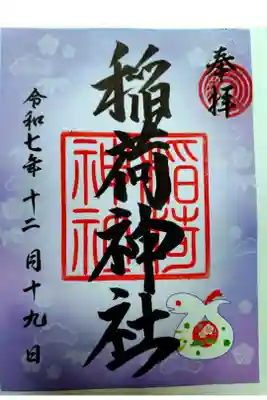 奉拝
稲荷神社
稲荷
神社
令和七年十二月十九日